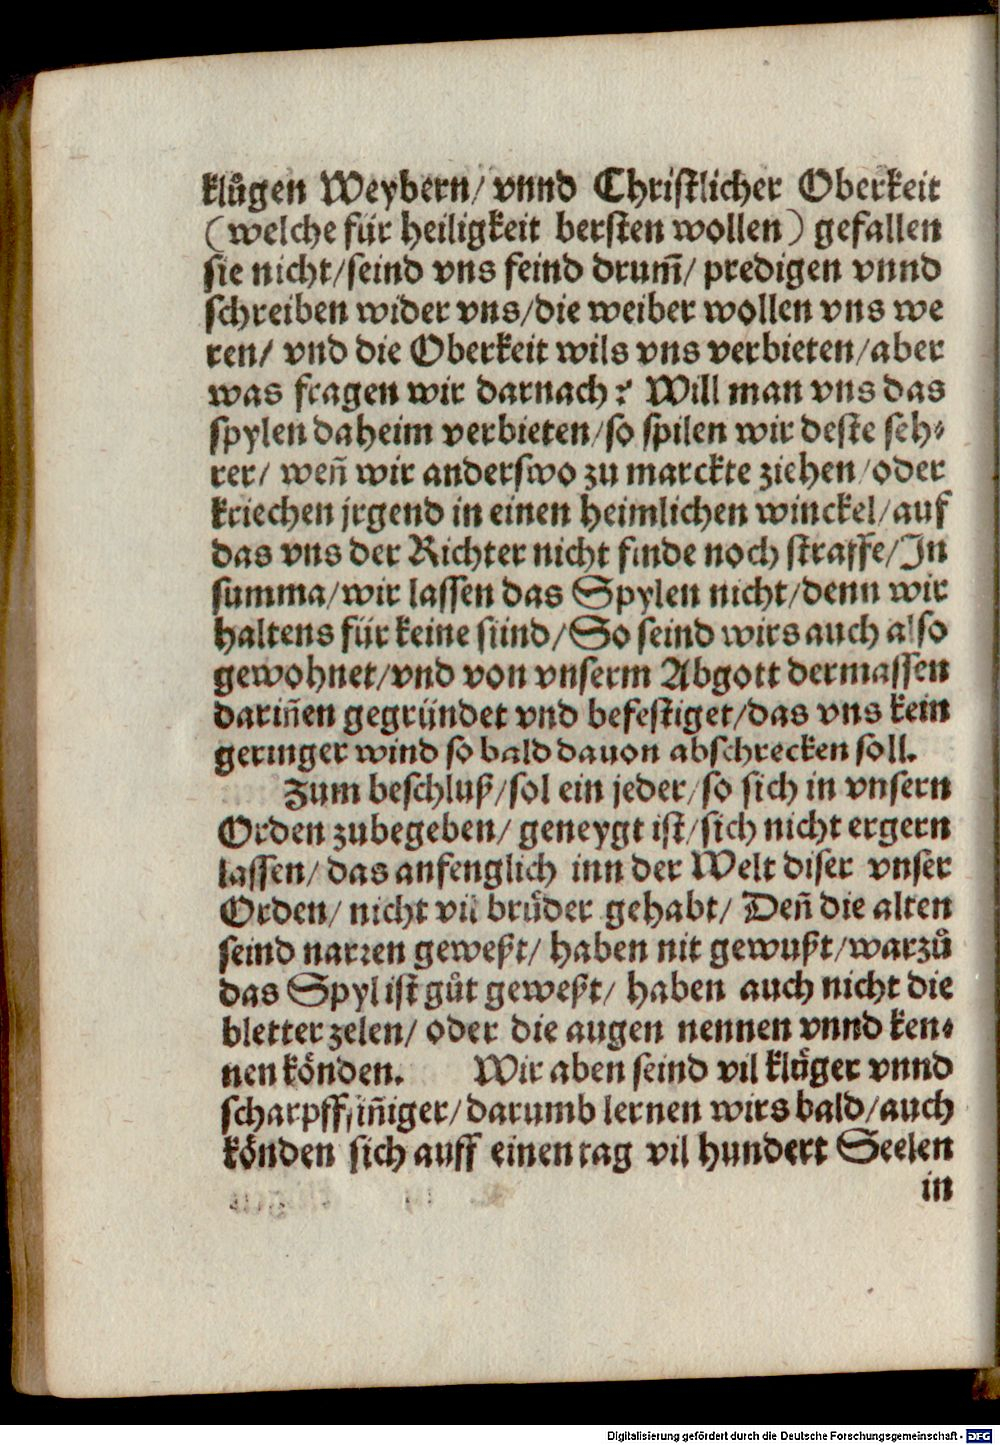 klůgen Weybern/ vnnd Christlicher Oberkeit
(welche für heiligkeit bersten wollen) gefallen
sie nicht/seind vns feind drum̃/ predigen vnnd
schreiben wider vns/die weiber wollen vns we
ren/ vnd die Oberkeit wils vns verbieten/aber
was fragen wir darnach? Will man vns das
spylen daheim verbieten/so spilen wir deste seh⸗
rer/ weñ wir anderswo zu marckte ziehen/oder
kriechen jrgend in einen heimlichen winckel/auf
das vns der Richter nicht finde noch straffe/In
summa/wir lassen das Spylen nicht/denn wir
haltens für keine sünd/So seind wirs auch also
gewohnet/vnd von vnserm Abgott dermassen
dariñen gegründet vnd befestiget/das vns kein
geringer wind so bald dauon abschrecken soll.
Zum beschluß/sol ein jeder/so sich in vnsern
Orden zubegeben/ geneygt ist/sich nicht ergern
lassen/ das anfenglich inn der Welt diser vnser
Orden/ nicht vil brůder gehabt/ Deñ die alten
seind narren geweßt/ haben nit gewußt/warzů
das Spyl ist gůt geweßt/ haben auch nicht die
bletter zelen/ oder die augen nennen vnnd ken⸗
nen könden. Wir aben seind vil klůger vnnd
scharpffsiñiger/darumb lernen wirs bald/auch
könden sich auff einen tag vil hundert Seelen
in
Digitalisierung gefördert durch die Deutsche Forschungsgemeinschaft - DFG